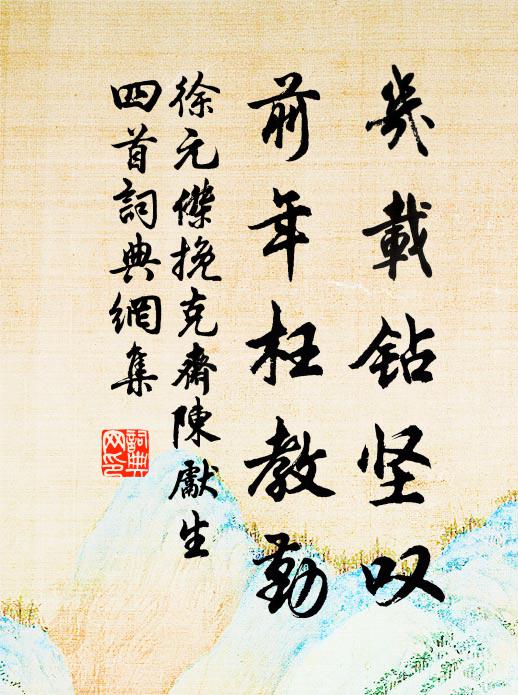 幾載钻坚叹
前年枉教勤
徐元傑挽克齋陳獻生
四首詞典網集
詞典网印